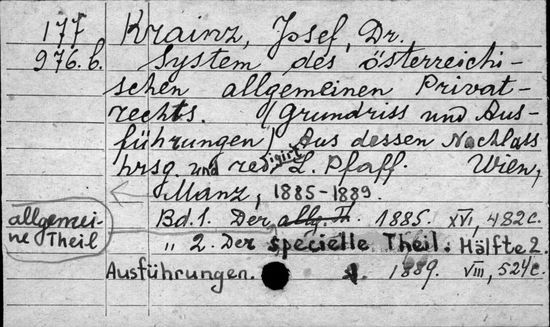 177 Krainz, Josef, Dr.
976.b. System des österreichi-
schen allgemeinen Privat-
rechts. (Grundriss und Aus-
führungen) Aus dessen Nachlass
hrsg. und redigirt L. Pfaff. Wien,
Manz, 1885-1889.
Bd. 1. Der allg. Th. 1885. XVI, 482 c.
allgemei-
ne Theil
„ 2. Der specielle Theil. Hälfte 2.
Ausführungen. 1889. VIII, 524 c.